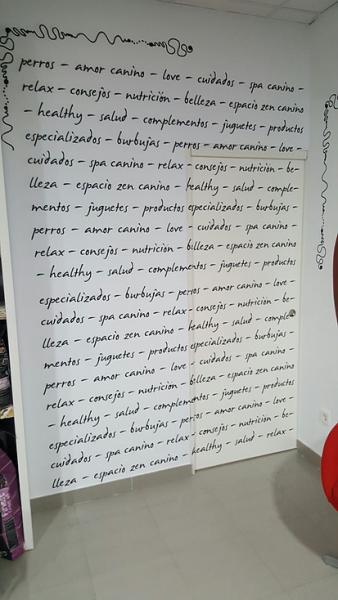 perros - amor canino - love - cuidados - spa canino -
relax - consejos - nutrición - belleza - espacio zen canino
- healthy - salud - complementos - juguetes - productos
especializados - burbujas - perros - amor canino - love -
cuidados - spa canino - relax - consejos - nutrición - be-
lleza - espacio zen canino - healthy - salud - comple-
mentos - juguetes - productos especializados - burbujas -
perros - amor canino - love - cuidados - spa canino -
relax - consejos - nutrición - belleza - espacio zen canino
- healthy - salud - complementos - juguetes - productos
especializados - burbujas - perros - amor canino - love -
cuidados - spa canino - relax - consejos - nutrición - be-
lleza - espacio zen canino - healthy - salud - comple
mentos - juguetes - productos especializados - burbujas -
perros - amor canino - love - cuidados - spa canino -
relax - consejos - nutrición - belleza - espacio zen canino
- healthy - salud - complementos - juguetes - productos
especializados - burbujas - perros - amor canino - love -
cuidados - spa canino - relax - consejos - nutrición - be-
lleza - espacio zen canino - healthy - salud - relax -